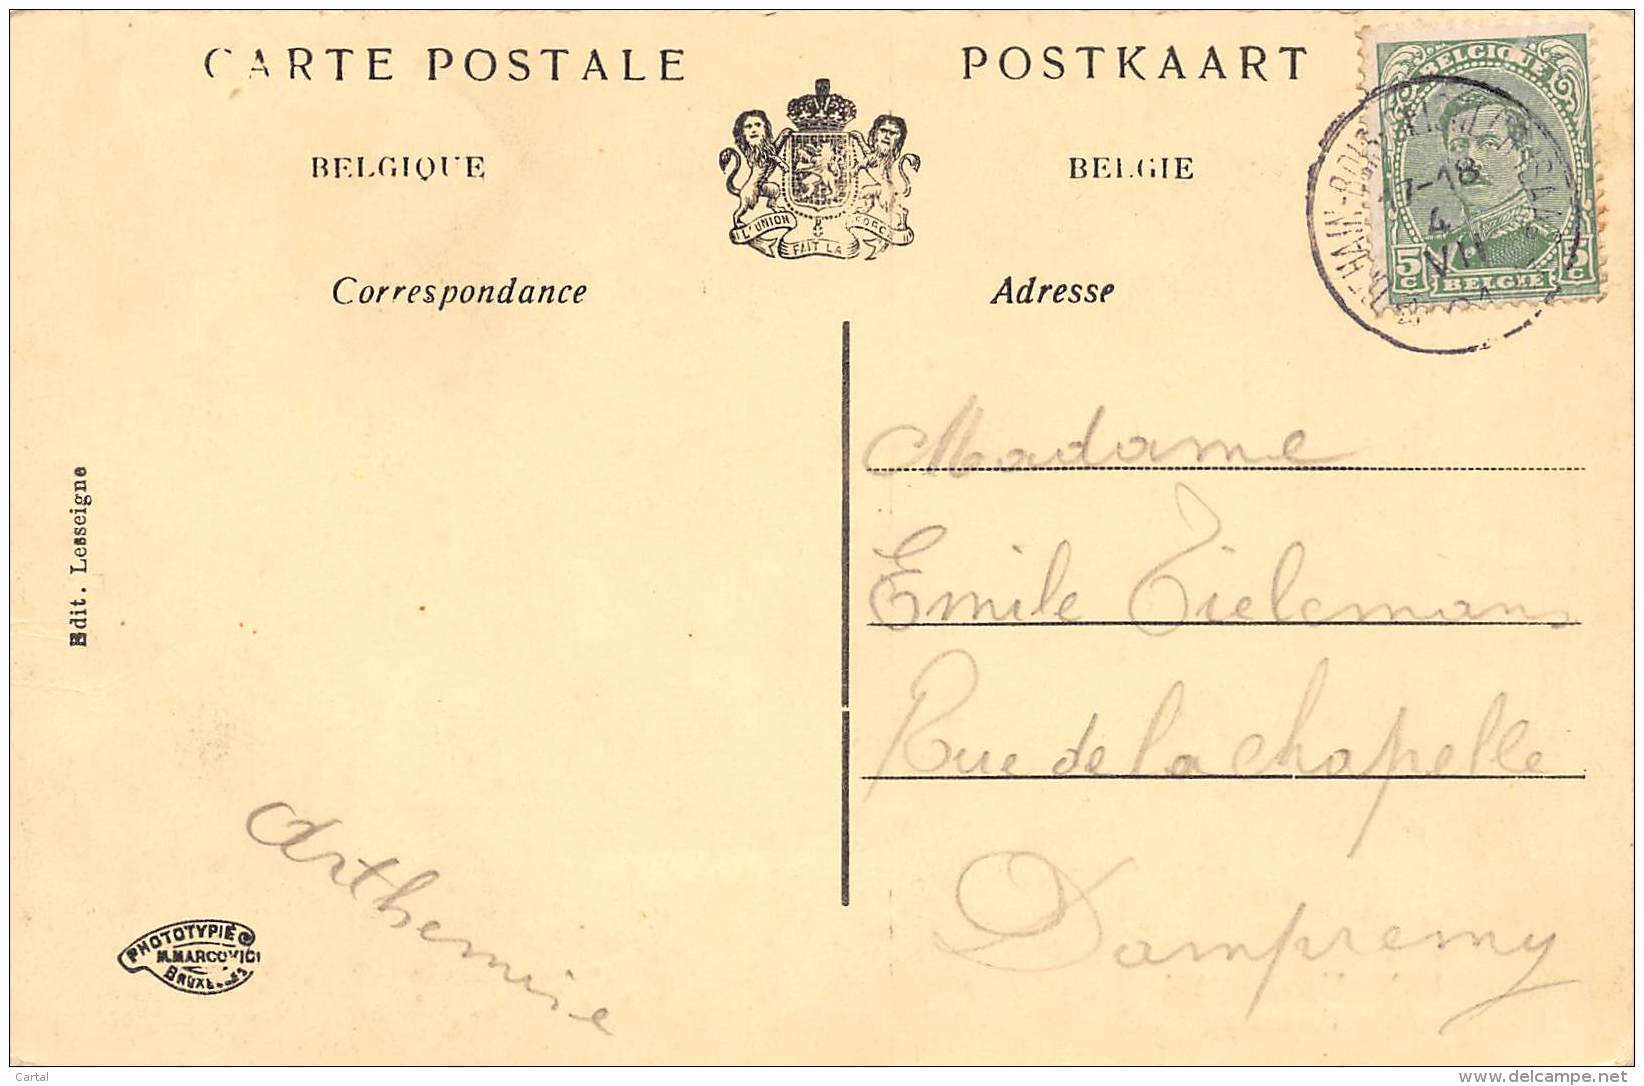 CARTE POSTALE
POSTKAART
BELGIQUE
BELGIE
L'UNION FAIT LA FORCE
Correspondance
Adresse
BELGIQUE
5 C
5 C
BELGIE
17-18
4
VII
Edit. Lesseigne
Madame
Emile Tielemans
Rue de la chapelle
Dampremy
Arthemise
PHOTOTYPIE
M. MARCOVICI
BRUXELLES
Cartal
delcampe.net